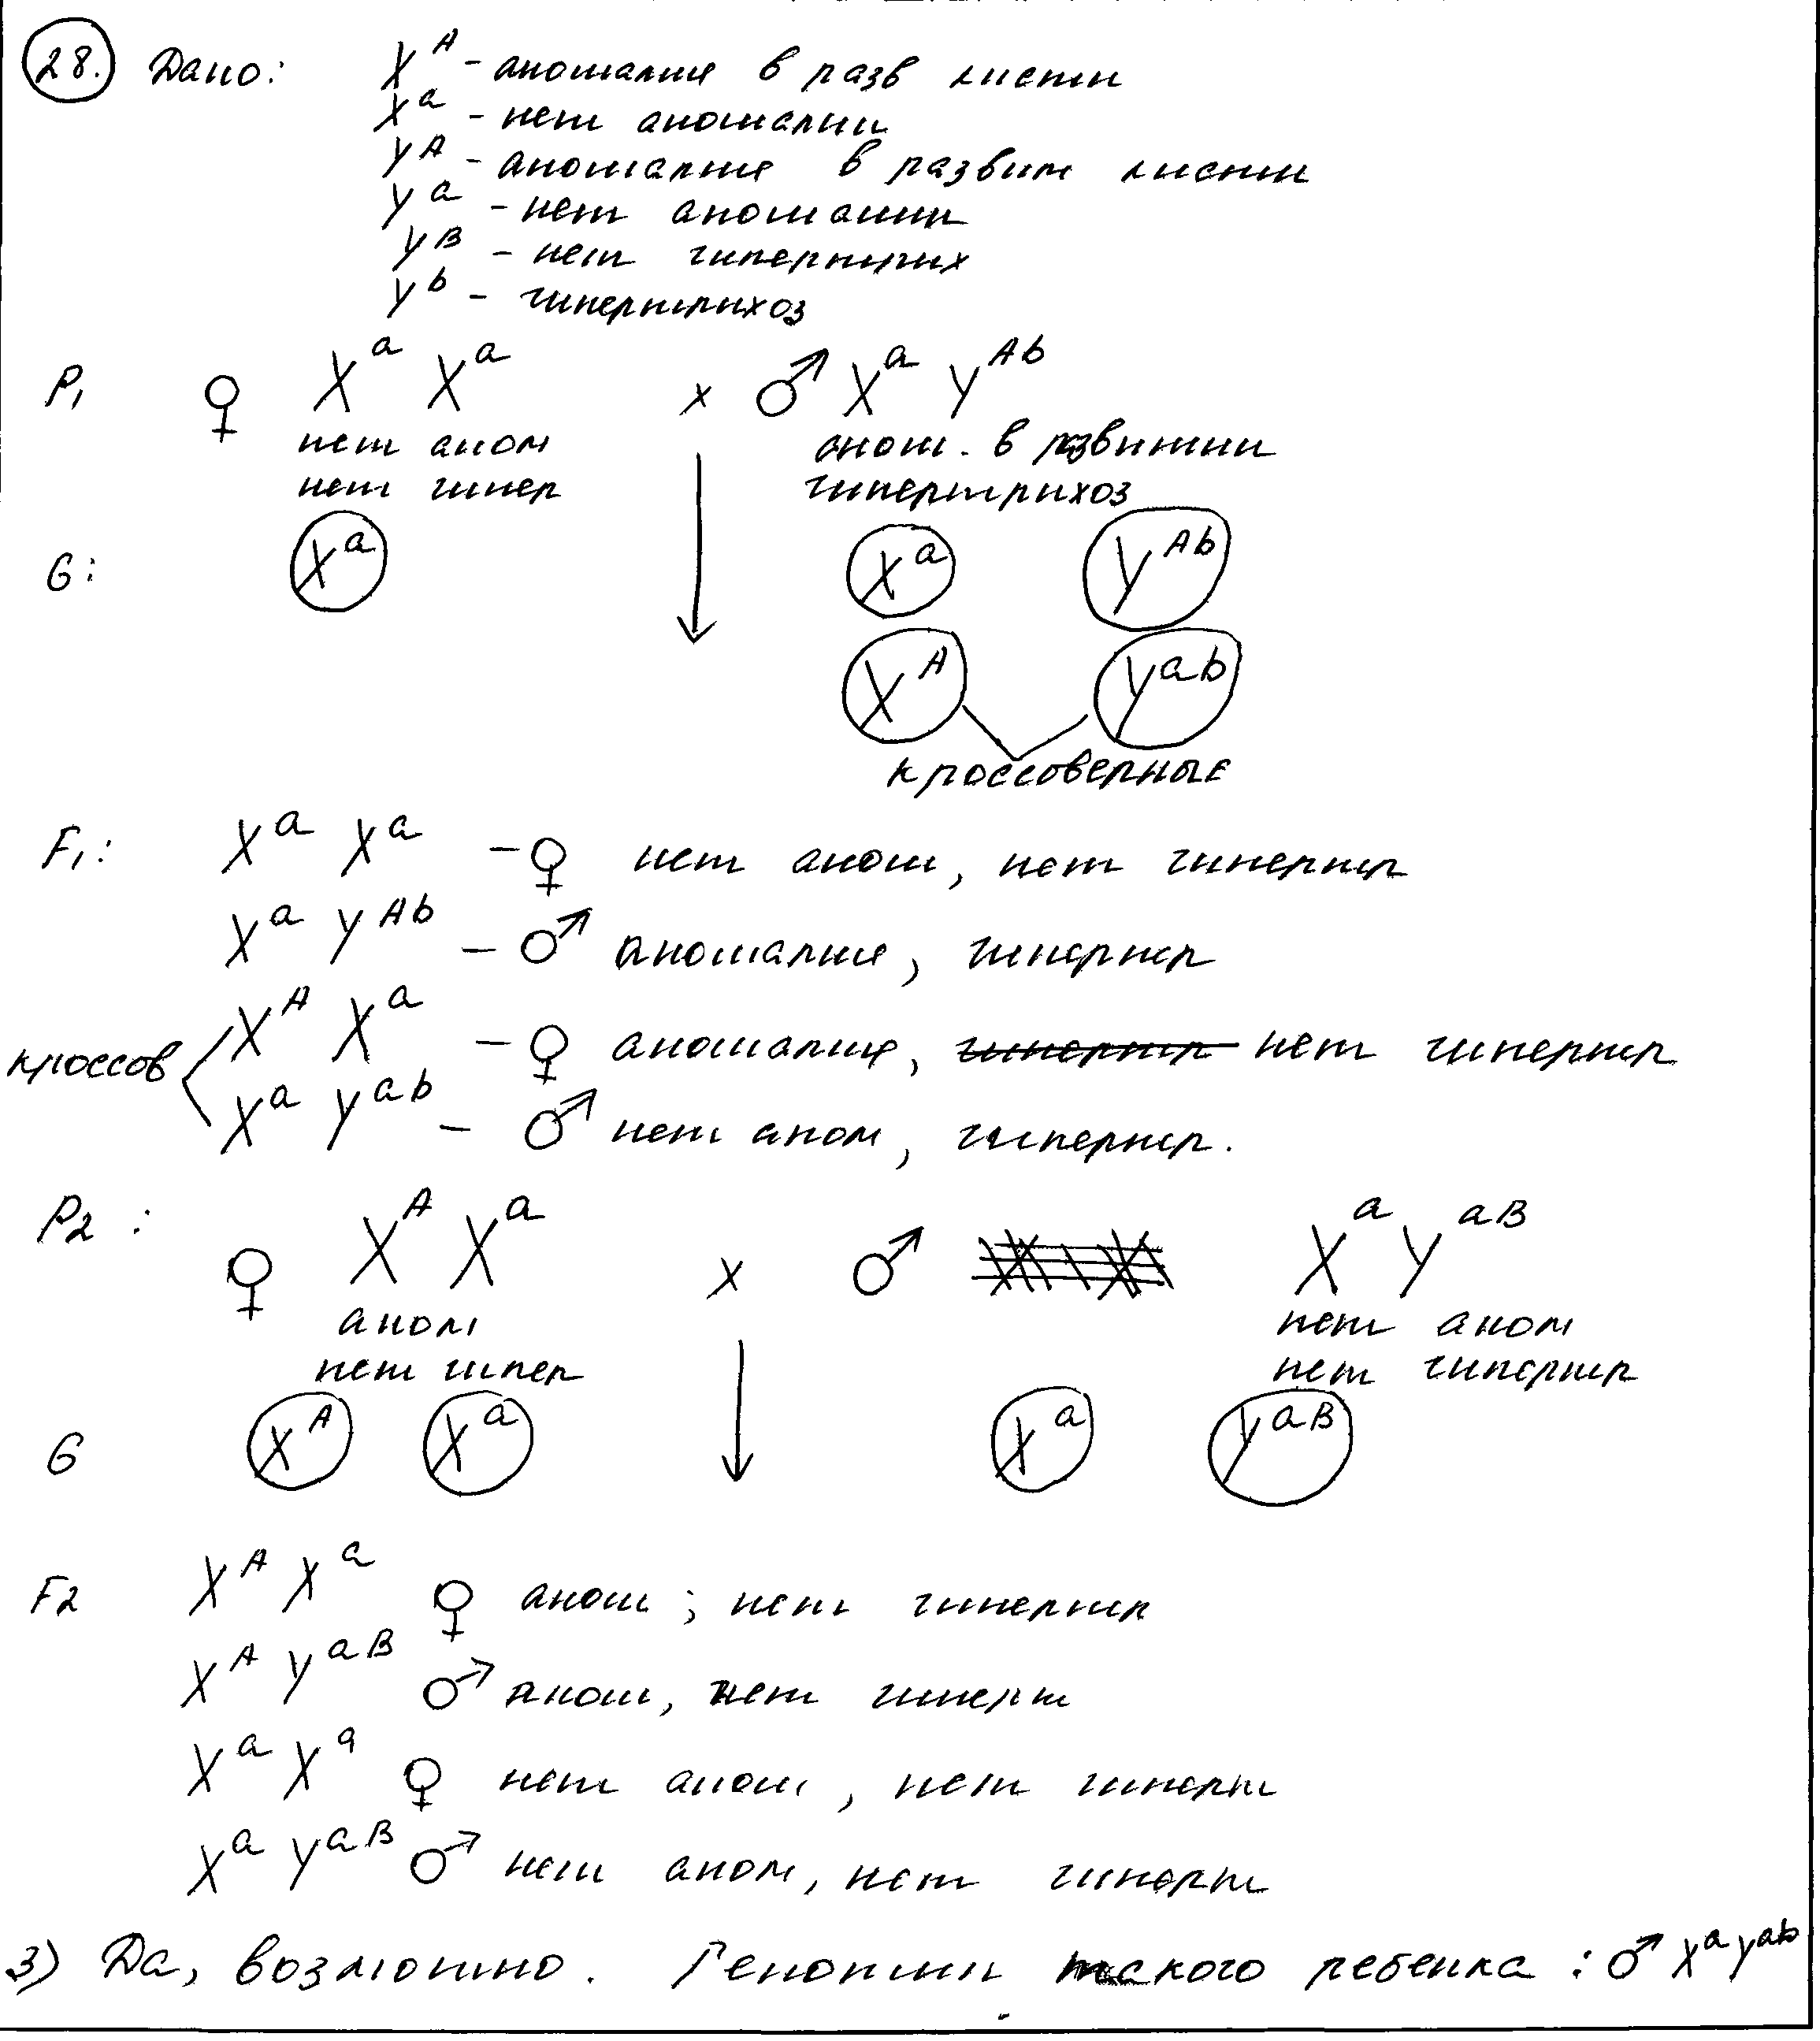 28. Дано: X^A - аномалия в разв кисти
X^a - нет аномалии
Y^A - аномалия в развит кисти
Y^a - нет аномалии
Y^B - нет гипертрих
Y^b - гипертрихоз
P1 ♀ X^a X^a x ♂ X^a Y^Ab
нет аном аном. в развитии
нет гипер гипертрихоз
G: X^a X^a Y^Ab
X^A Y^ab
кроссоверные
F1: X^a X^a - ♀ нет аном, нет гипертр
X^a Y^Ab - ♂ аномалия, гипертр
кроссов X^A X^a - ♀ аномалия, гипертр нет гипертр
X^a Y^ab - ♂ нет аном, гипертр.
P2: ♀ X^A X^a x ♂ X^a Y^aB
аном нет аном
нет гипер нет гипертр
G X^A X^a X^a Y^aB
F2 X^A X^a ♀ аном; нет гипертр
X^A Y^aB ♂ аном, нет гиперт
X^a X^a ♀ нет аном, нет гиперт
X^a Y^aB ♂ нет аном, нет гиперт
3) Да, возможно. Генотип такого ребенка: ♂ X^a Y^ab